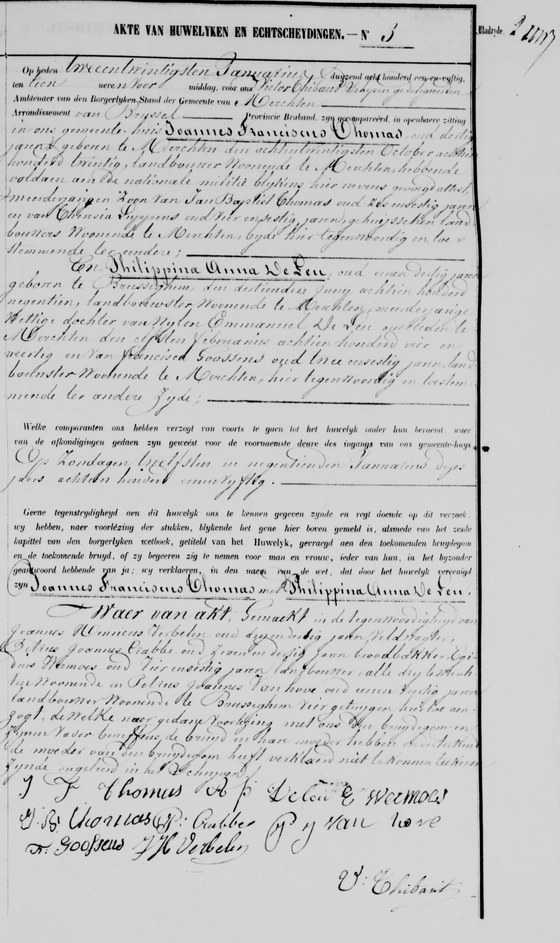 AKTE VAN HUWELYKEN EN ECHTSCHEYDINGEN. — N° 3
Bladzyde. 2
Op heden tweentwintigsten Januarius duyzend acht honderd een-en-vyftig,
ten tien uren voor middag, voor ons Victor Thibaut Schepen gedelegeerden
Ambtenaer van den Borgerlyken-Stand der Gemeente van Merchten
Arrondissement van Brussel Provincie Braband, zyn gecompareerd, in openbare zitting
in ons gemeente huis Joannes Franciscus Thomas, oud dertig
jaren, geboren te Merchten den achtentwintigsten October achtien
honderd twintig, landbouwer Woonende te Merchten, hebbende
voldaen aen de nationale militie blykens hier nevens gevoegd attest,
meerderjarigen Zoon van Jan Baptist Thomas oud zesensestig jaren
en van Theresia Puppens oud vier ensestig jaren, gehuysschen land-
bouwers Woonende te Merchten, byde hier tegenwoordig en toe-
stemmende ter eendere;
En Philippina Anna De Leu, oud eenen dertig jaren
geboren te Brusseghem, den dertienden Juny achtien honderd
negentien, landbouwster Woonende te Merchten, meerderjarige
Wettige dochter van Wylen Emmanuel De Leu overleden te
Merchten den elfsten februarius achtien honderd vier en
veertig en van Francisca Goossens oud twee ensestig jaren, land-
bouwster Woonende te Merchten, hier tegenwoordig en toestem-
mende ter andere Zyde;
Welke comparanten ons hebben verzogt van voorts te gaen tot het huwelyk onder hun beraemd, waer
van de afkondigingen gedaen zyn geweest voor de voornaemste deure des ingangs van ons gemeente-huys
Op Zondagen, twelfsten en negentienden Januarius dezes
jaers achtien honderd eenenvyftig.
Geene tegenstrydigheyd aen dit huwelyk ons te kennen gegeven zynde en regt doende op dit verzoek,
wy hebben, naer voorlezing der stukken, blykende het gene hier boven gemeld is, alsmede van het zesde
kapittel van den borgerlyken wetboek, getiteld van het Huwelyk, gevraegd aen den toekomenden bruydegom
en de toekomende bruyd, of zy begeeren zig te nemen voor man en vrouw, ieder van hun, in het byzonder
geantwoord hebbende van ja; wy verklaeren, in den naem van de wet, dat door het huwelyk vereenigd
zyn Joannes Franciscus Thomas met Philippina Anna De Leu.
Waer van akt, Gemaekt in de tegenwoordigheyd van
Joannes Henricus Verbelen oud dryendertig jaren, Veldwachter,
Petrus Joannes Crabbe oud zeven en dertig jaren broodbakker, Egi-
dius Wemoes oud vier ensestig jaren, landbouwer, alle dry te Merch-
ten Woonende en Petrus Joannes Van hove oud eenen jaren
landbouwer Woonende te Brusseghem vier getuygen hier toe aen-
zogt, de welke naer gedane voorlezing met ons den bruydegom en
Zynen Vader de bruyd en hare moeder hebben onderteekend
de moeder van den bruydegom heeft verklaerd niet te konnen teekenen
Zynde ongeleerd in het Schryven.
J F Thomas A p De Leu E Weemoes
J. B. Thomas P. Crabbe P J Van hove
F. Goossens J H Verbelen
V. Thibaut